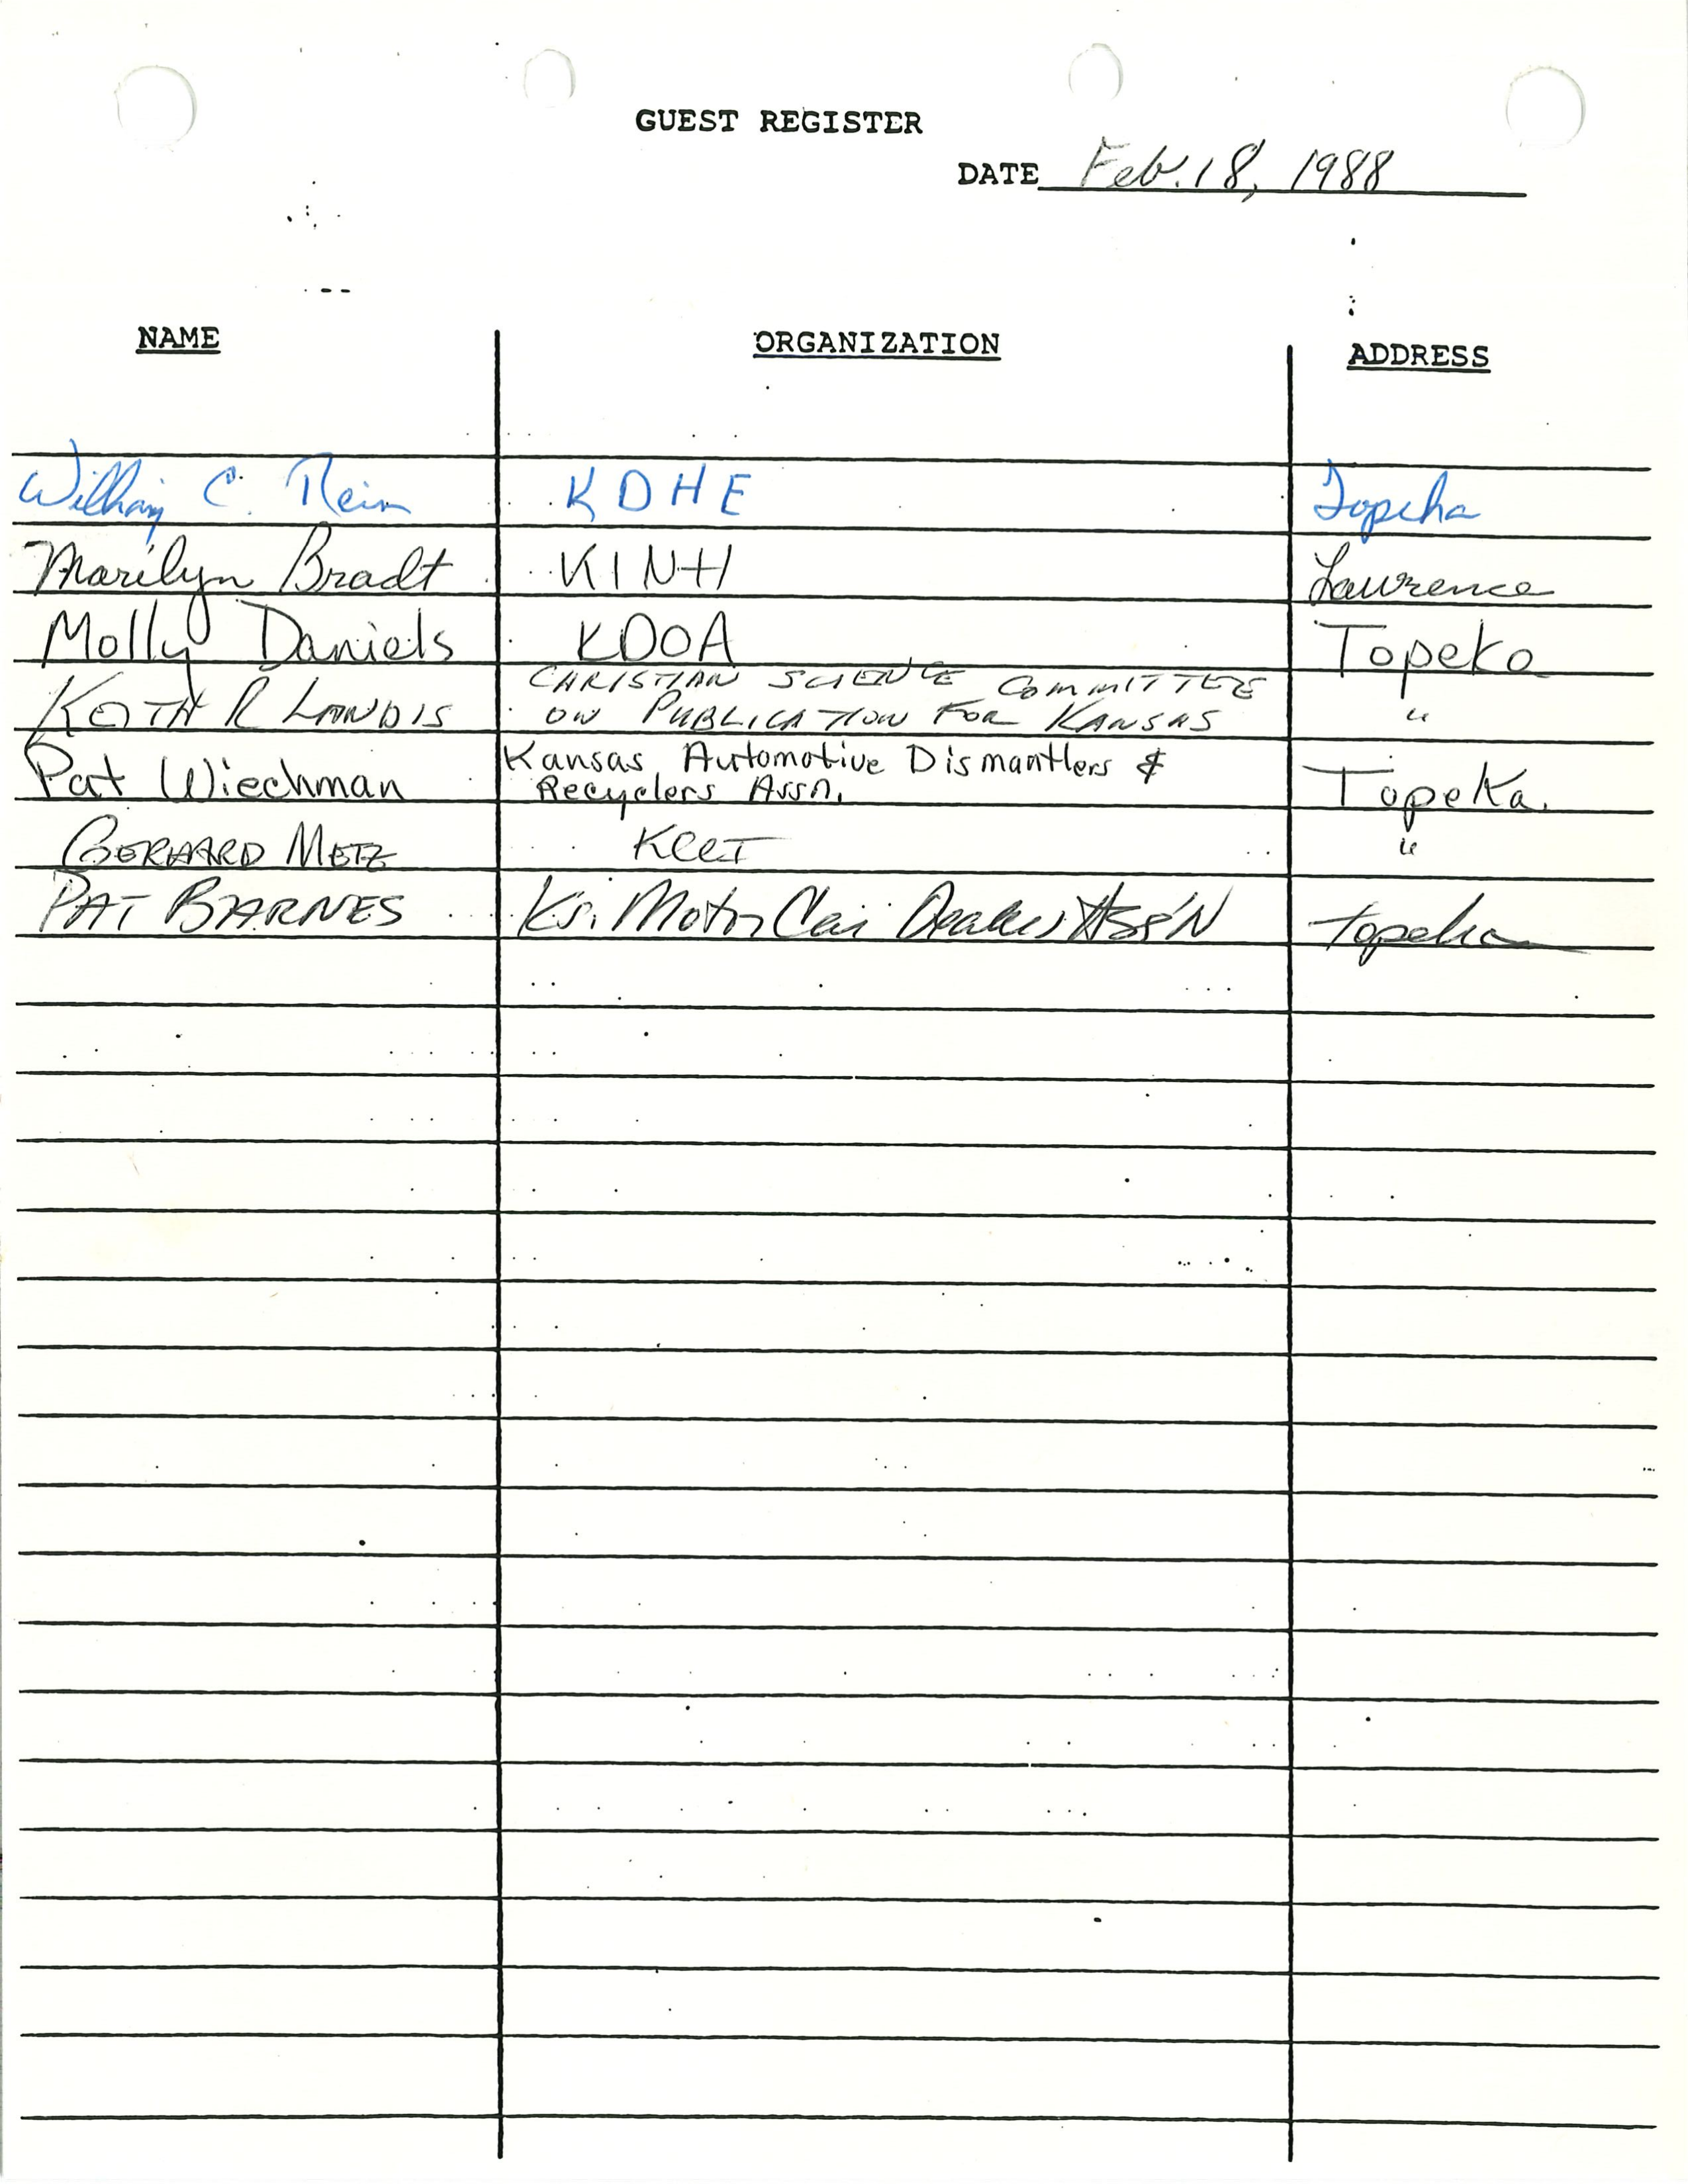 GUEST REGISTER
DATE Feb. 18, 1988
NAME ORGANIZATION ADDRESS
William C. Rein KDHE Topeka
Marilyn Bradt KINH Lawrence
Molly Daniels KDOA Topeka
KEITH R LANDIS CHRISTIAN SCIENCE COMMITTEE
ON PUBLICATION FOR KANSAS "
Pat Wiechman Kansas Automotive Dismantlers &
Recyclers Assn. Topeka.
GERHARD METZ KCCI "
PAT BARNES Ks. Motor Car Dealers Ass'N Topeka